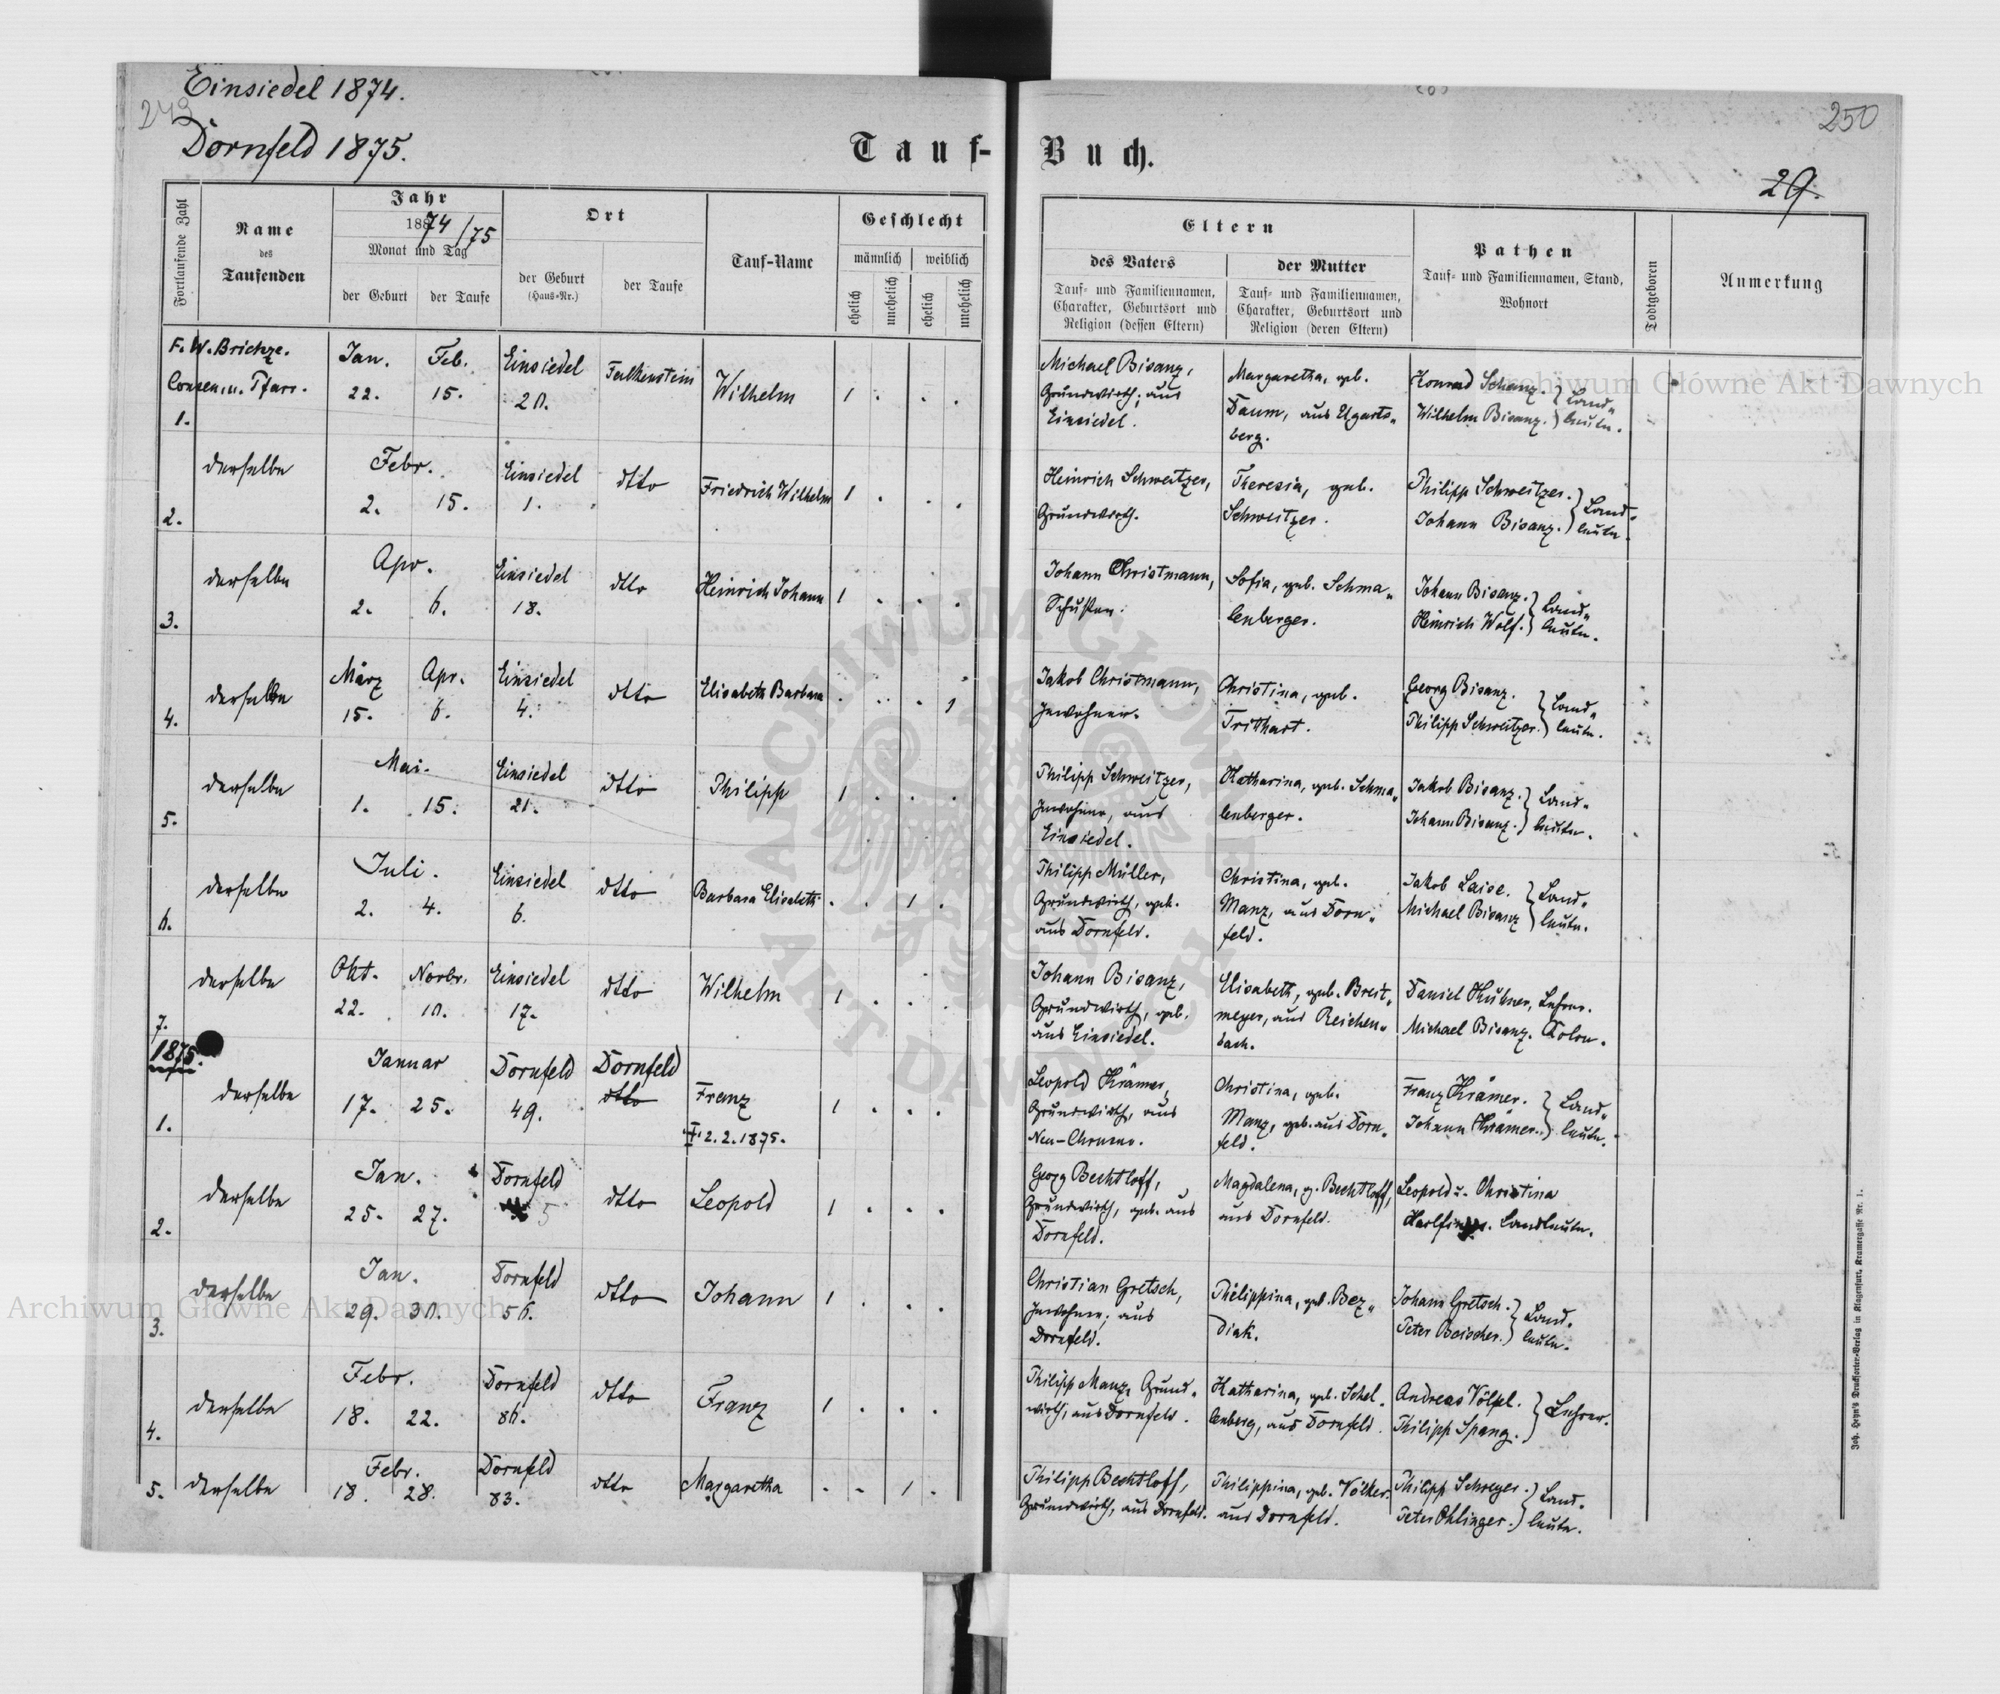 Einsiedel 1874.
249
Dornfeld 1875.
Tauf-Buch.
250
29.
Fortlaufende Zahl
Name
des
Taufenden
Jahr
1874/75
Monat und Tag
der Geburt
der Taufe
Ort
der Geburt
(Haus-Nr.)
der Taufe
Tauf-Name
Geschlecht
männlich
weiblich
ehelich
unehelich
ehelich
unehelich
Eltern
des Vaters
Tauf- und Familiennamen,
Charakter, Geburtsort und
Religion (dessen Eltern)
der Mutter
Tauf- und Familiennamen,
Charakter, Geburtsort und
Religion (deren Eltern)
Pathen
Tauf- und Familiennamen, Stand,
Wohnort
Todtgeboren
Anmerkung
1.
F. W.
Pfarr.
Jan. 22.
Feb. 15.
Einsiedel 20.
Falkenstein
Wilhelm
1 . . .
Michael Bisanz,
Grundwirth, aus
Einsiedel.
Margaretha, geb.
Daum, aus Ugarts-
berg.
Konrad Schanz.
Wilhelm Bisanz.
Land-
leute.
2.
derselbe
Febr.
2. 15.
Einsiedel 1.
dtto
Friedrich Wilhelm
1 . . .
Heinrich Schweitzer,
Grundwirth.
Theresia, geb.
Schweitzer.
Philipp Schweitzer.
Johann Bisanz.
Land-
leute.
3.
derselbe
Apr.
2. 6.
Einsiedel 18.
dtto
Heinrich Johann
1 . . .
Johann Christmann,
Schuster.
Sofia, geb. Schma-
lenberger.
Johann Bisanz.
Heinrich Wolf.
Land-
leute.
4.
derselbe
März 15.
Apr. 6.
Einsiedel 4.
dtto
Elisabeth Barbara
. . . 1
Jakob Christmann,
Inwohner.
Christina, geb.
Tritthart.
Georg Bisanz.
Philipp Schweitzer.
Land-
leute.
5.
derselbe
Mai.
1. 15.
Einsiedel 21.
dtto
Philipp
1 . . .
Philipp Schweitzer,
Inwohner, aus
Einsiedel.
Katharina, geb. Schma-
lenberger.
Jakob Bisanz.
Johann Bisanz.
Land-
leute.
6.
derselbe
Juli.
2. 4.
Einsiedel 6.
dtto
Barbara Elisabeth
. . 1 .
Philipp Müller,
Grundwirth, geb.
aus Dornfeld.
Christina, geb.
Manz, aus Dorn-
feld.
Jakob Laise.
Michael Bisanz
Land-
leute.
7.
derselbe
Okt. 22.
Novbr. 10.
Einsiedel 17.
dtto
Wilhelm
1 . . .
Johann Bisanz,
Grundwirth, geb.
aus Einsiedel.
Elisabeth, geb. Breit-
meyer, aus Reichen-
bach.
Daniel Hubner, Lehrer.
Michael Bisanz. Kolon.
1875.
1.
derselbe
Januar
17. 25.
Dornfeld 49.
Dornfeld
dtto
Franz
† 2.2.1875.
1 . . .
Leopold Krämer,
Grundwirth, aus
Neu-Chrusno.
Christina, geb.
Manz, geb. aus Dorn-
feld.
Franz Krämer.
Johann Krämer.
Land-
leute.
2.
derselbe
Jan.
25. 27.
Dornfeld 5
dtto
Leopold
1 . . .
Georg Bechtloff,
Grundwirth, geb. aus
Dornfeld.
Magdalena, g. Bechtloff,
aus Dornfeld.
Leopold u. Christina
Harlfinger. Landleute.
3.
derselbe
Jan.
29. 30.
Dornfeld 56.
dtto
Johann
1 . . .
Christian Gretsch,
Inwohner, aus
Dornfeld.
Philippina, geb. Bez-
diak.
Johann Gretsch.
Peter Beischer.
Land-
leute.
4.
derselbe
Febr.
18. 22.
Dornfeld 86.
dtto
Franz
1 . . .
Philipp Manz, Grund-
wirth, aus Dornfeld.
Katharina, geb. Schel-
lenberg, aus Dornfeld.
Andreas Völpel.
Philipp Spang.
Lehrer.
5.
derselbe
Febr.
18. 28.
Dornfeld 83.
dtto
Margaretha
. . 1 .
Philipp Bechtloff,
Grundwirth, aus Dornfeld.
Philippina, geb. Völker.
aus Dornfeld.
Philipp Schreyer.
Peter Ohlinger.
Land-
leute.
Joh. Heyn's Drucksorten-Verlag in Klagenfurt, Kramergasse Nr. 1.
Archiwum Główne Akt Dawnych
Archiwum Główne Akt Dawnych
ARCHIWUM GŁÓWNE AKT DAWNYCH